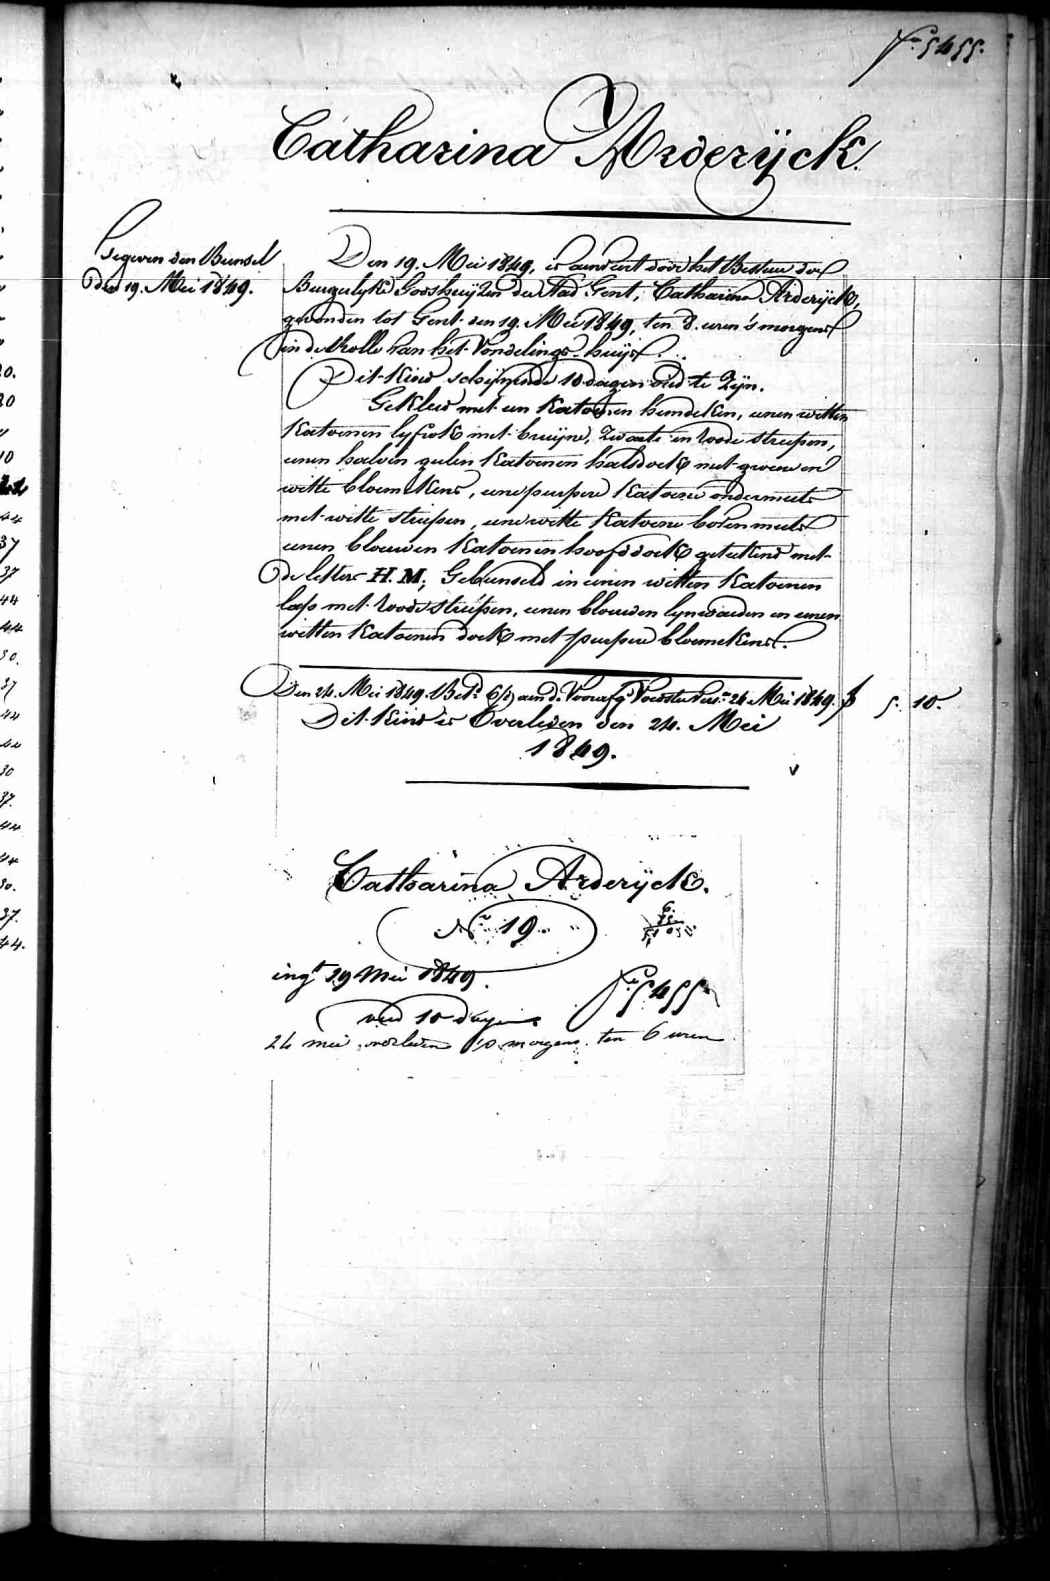 Fo 5455.
Catharina Arderÿck.
Gegeven den Bunsel
den 19. Mei 1849.
Den 19. Mei 1849, is aenveirt door het Bestuer der
Burgerlyke Godshuyzen der Stad Gent, Catharina Arderÿck,
gevonden tot Gent den 19. Mei 1849, ten 8. uren 's morgens
in de Rolle van het Vondelings-huijs.
Dit Kind schijnende 10 dagen oud te Zijn.
Gekleed met een Katoenen hemdeken, eenen witten
Katoenen lyfrok met bruijne, Zwarte en roode streepen,
eenen halven gelen Katoenen halsdoek met groene en
witte bloemekens, eene purpere Katoene ondermuts
met witte streepen, eene witte Katoene bovenmuts
eenen blouwen Katoenen hoofddoek geteekend met
de letters H. M; Gebunseld in eenen witten Katoenen
lap met roode streepen, eenen blouwen lynwaeden en eenen
witten Katoenen doek met purpere bloemekens.
Den 24. Mei 1849. Betd aen de Voedster 24 Mei 1849. 5. 10.
Dit Kind is Overleden den 24. Mei
1849.
Catharina Arderÿck.
No 19.
ingt 19 Mei 1849.
Fo 5455
oud 10 dagen
24 mei overleden 's morgens ten 6 uren